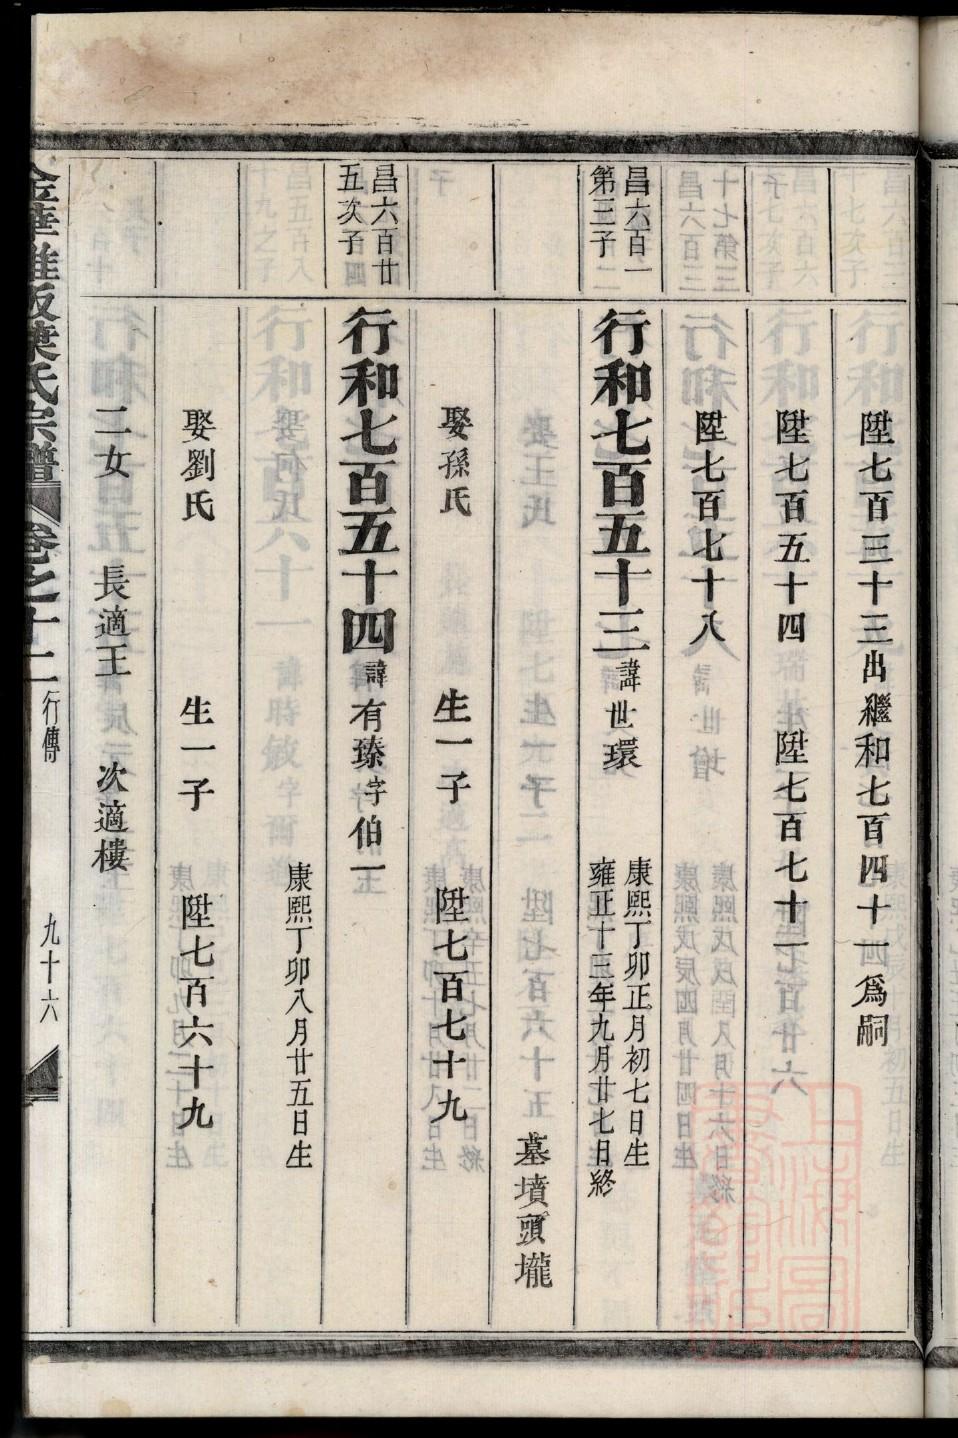 陞七百三十三出繼和七百四十四爲嗣
陞七百五十四　陞七百七十一
陞七百七十八
昌六百一
第三子
行和七百五十三諱世環
康熙丁卯正月初七日生
雍正十三年九月廿七日終
墓墳頭壠
娶孫氏　生一子　陞七百七十九
昌六百廿
五次子
行和七百五十四諱有臻字伯一
康熙丁卯八月廿五日生
娶劉氏　生一子　陞七百六十九
二女　長適王　次適樓
葉氏宗譜　卷之十二　行傳　九十六